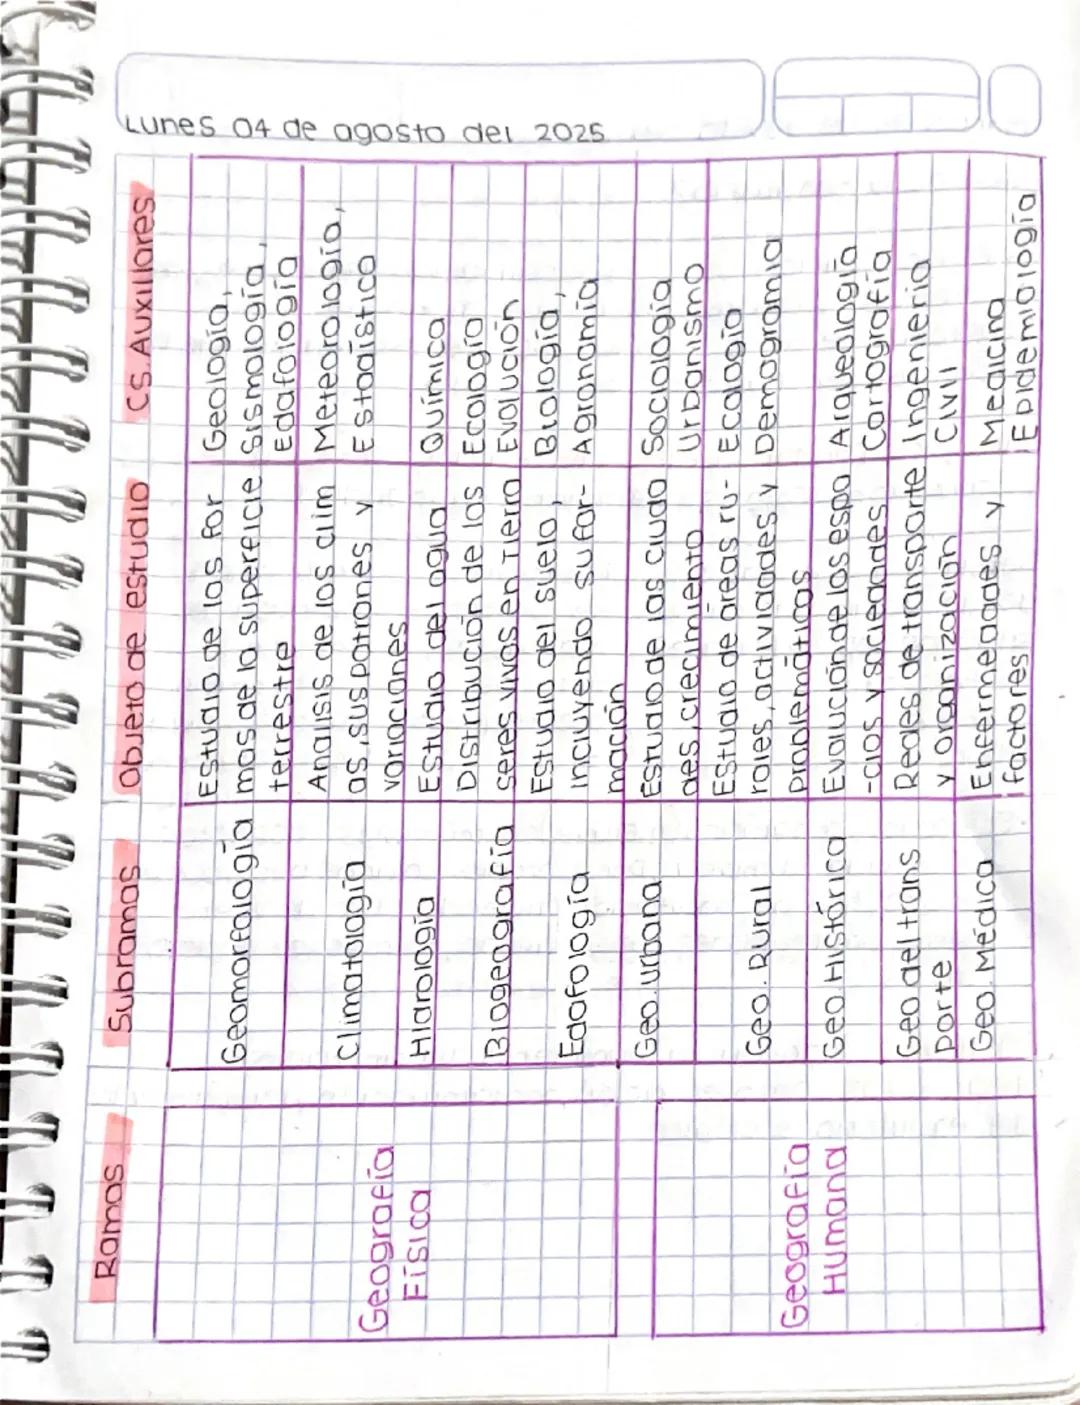 Lunes 04 de agosto del 2025
Ramas
Subramas
Objeto de estudio
CS. Auxiliares
Geografía
Física
Geomorfología
Estudio de las for
mas de la superficie
terrestre
Geología,
Sismología,
Edafología
Climatología
Análisis de los clim
as, sus patrones y
variaciones
Meteorología,
Estadístico
Hidrología
Estudio del agua
Química
Biogeografía
Distribución de los
seres vivos en Tierra
Ecología
Evolución
Edafología
Estudio del suelo,
incluyendo su for-
mación
Biología,
Agronomía
Geografía
Humana
Geo. Urbana
Estudio de las ciuda
des, crecimiento
Sociología
Urbanismo
Geo. Rural
Estudio de áreas ru-
rales, actividades y
problemáticas
Ecología
Demografía
Geo. Histórica
Evolución de los espa
-cios y sociedades
Arqueología
Cartografía
Geo del trans
porte
Redes de transporte
y organización
Ingenieria
Civil
Geo. Médica
Enfermedades y
factores
Medicina
Epidemiología